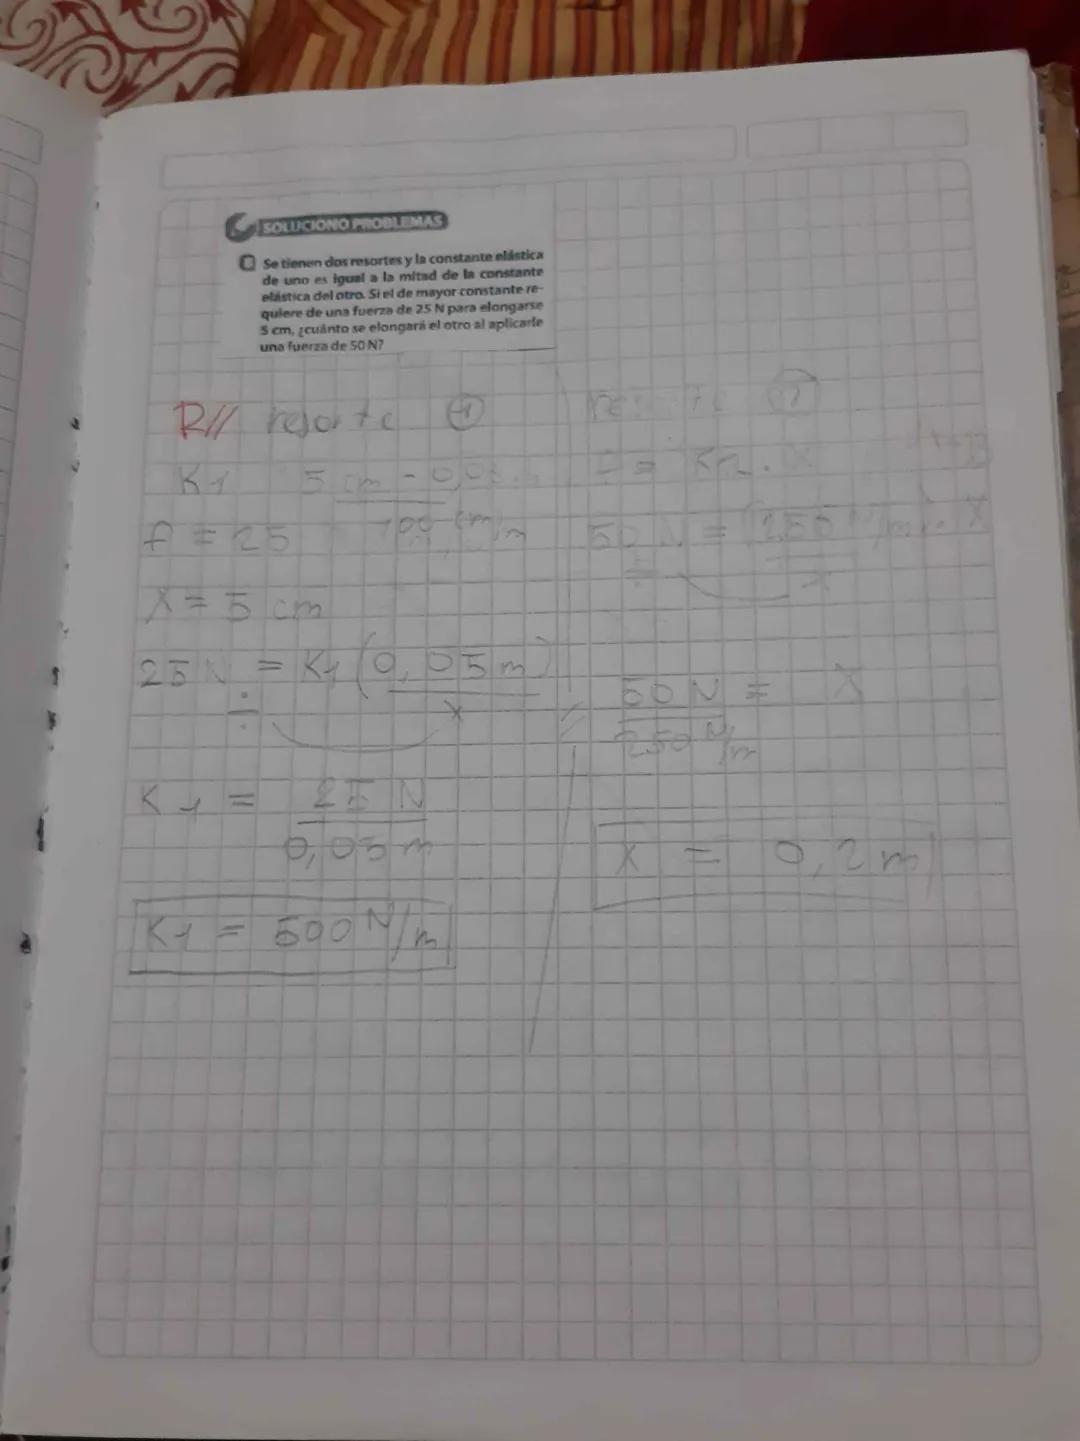 SOLUCIONO PROBLEMAS
Se tienen dos resortes y la constante elástica
de uno es igual a la mitad de la constante
elástica del otro. Si el de mayor constante re-
quiere de una fuerza de 25 N para elongarse
5 cm, ¿cuánto se elongará el otro al aplicarle
una fuerza de 50 N?
R// resorte 1
K1 5 cm = 0,05
100 cm/m
f = 25
X = 5 cm
25 N = K1 (0,05 m)
÷ x
K1 = 25 N
0,05 m
K1 = 500 N/m
resorte 2
F = K2 . X
50 N = (250 N/m) . X
÷ x
50 N = X
250 N/m
X = 0,2 m